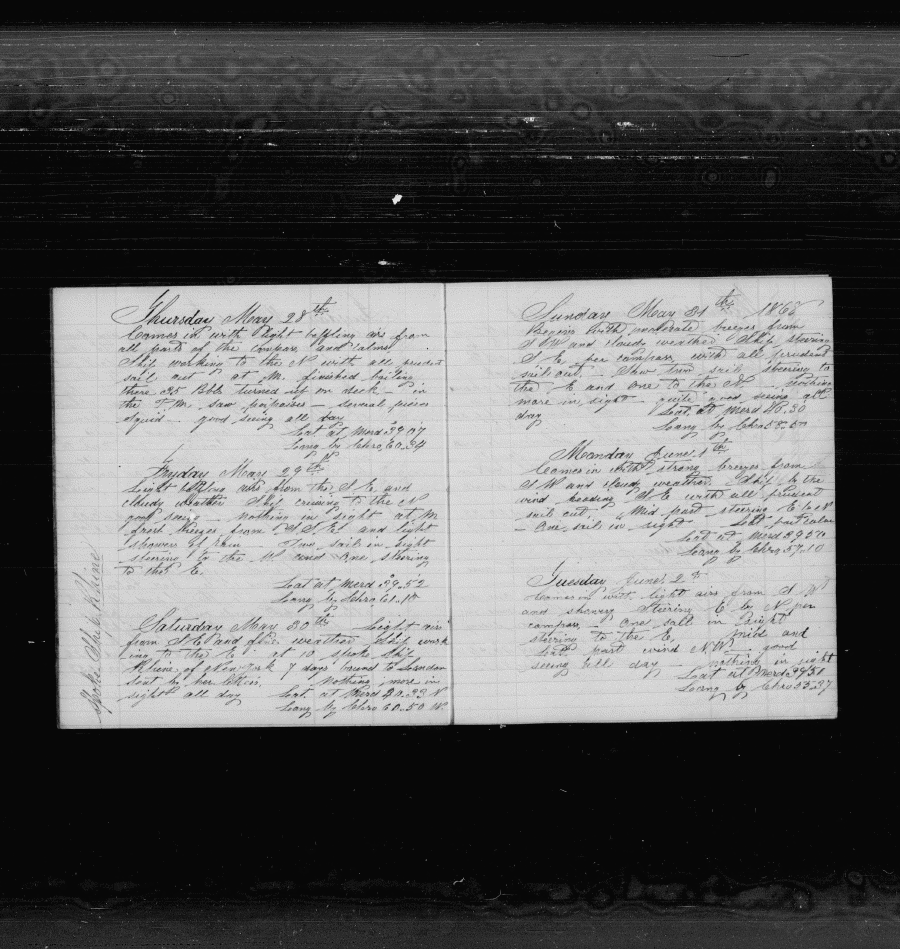 Thursday May 28th
Comes in with light baffling airs from
all parts of the compass and calms
Ship working to the N with all prudent
sail out at M. finished boiling
there 25 Bbls turned up on deck - in
the P.M. saw porpoises - several pieces
squid - good seeing all day
Lat at Merd 39.07
Long by Chro. 60.34
Fryday May 29th
Light baffling airs from the S E and
cloudy weather Ship cruising to the N
good seeing nothing in sight at M
fresh breezes from S S E and light
showers of rain - Two sail in sight
steering to the W and one steering
to the E.
Lat at Merd 39.52
Long by Chro. 61.10
Saturday May 30th Light airs
from S E and fine weather Ship work
ing to the E at 10 spoke Ship
of New York 7 days bound to London
sent by her letters. nothing more in
sight all day Lat. at Merd 20.33 N
Long by Chro 60.50 W.
Spoke Ship
Sunday May 31th 1863
Begins with moderate breezes from
S W and cloudy weather Ship steering
S E per compass with all prudent
sail out - Saw two sail steering to
the E and one to the N - nothing
more in sight - quite good seeing all
day Lat. at Merd 40.30
Long by Chro 58.50
Monday June 1th
Comes in with strong breezes from
S W and cloudy weather. Ship by the
wind heading S E with all prudent
sail out. Mid part steering E by N
- One sail in sight - Latt part calm
Lat at Merd 39.50
Long by Chro 57.10
Tuesday June 2th
Comes in with light airs from S W
and showery steering E by N per
compass - One sail in sight
steering to the E, Mid and
Latt part wind N W good
seeing all day - nothing in sight
Lat at Merd 39.51
Long by Chro 55.37